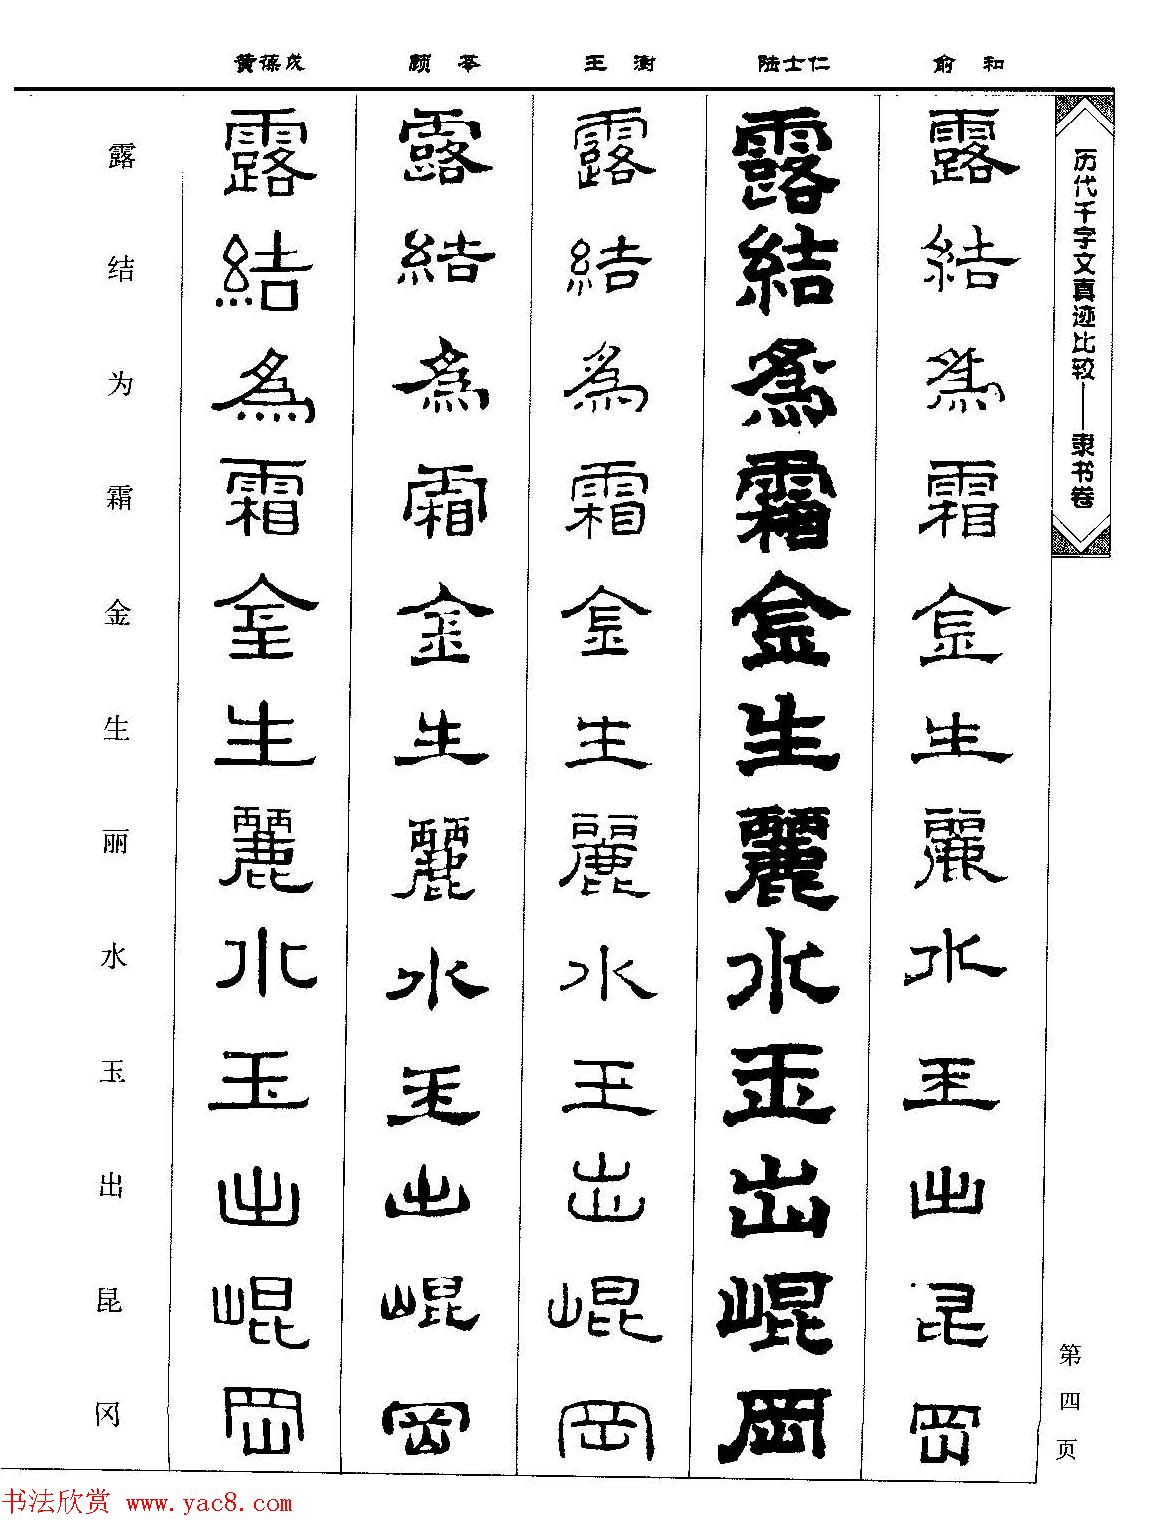 黄葆戊 顾苓 王澍 陆士仁 俞和
历代千字文真迹比较——隶书卷
露 露 露 露 露 露
结 結 結 結 結 結
为 為 為 為 為 為
霜 霜 霜 霜 霜 霜
金 金 金 金 金 金
生 生 生 生 生 生
丽 麗 麗 麗 麗 麗
水 水 水 水 水 水
玉 玉 玉 玉 玉 玉
出 出 出 出 出 出
昆 崐 崐 崐 崐 昆
冈 岡 岡 岡 岡 岡
第四页
书法欣赏 www.yac8.com